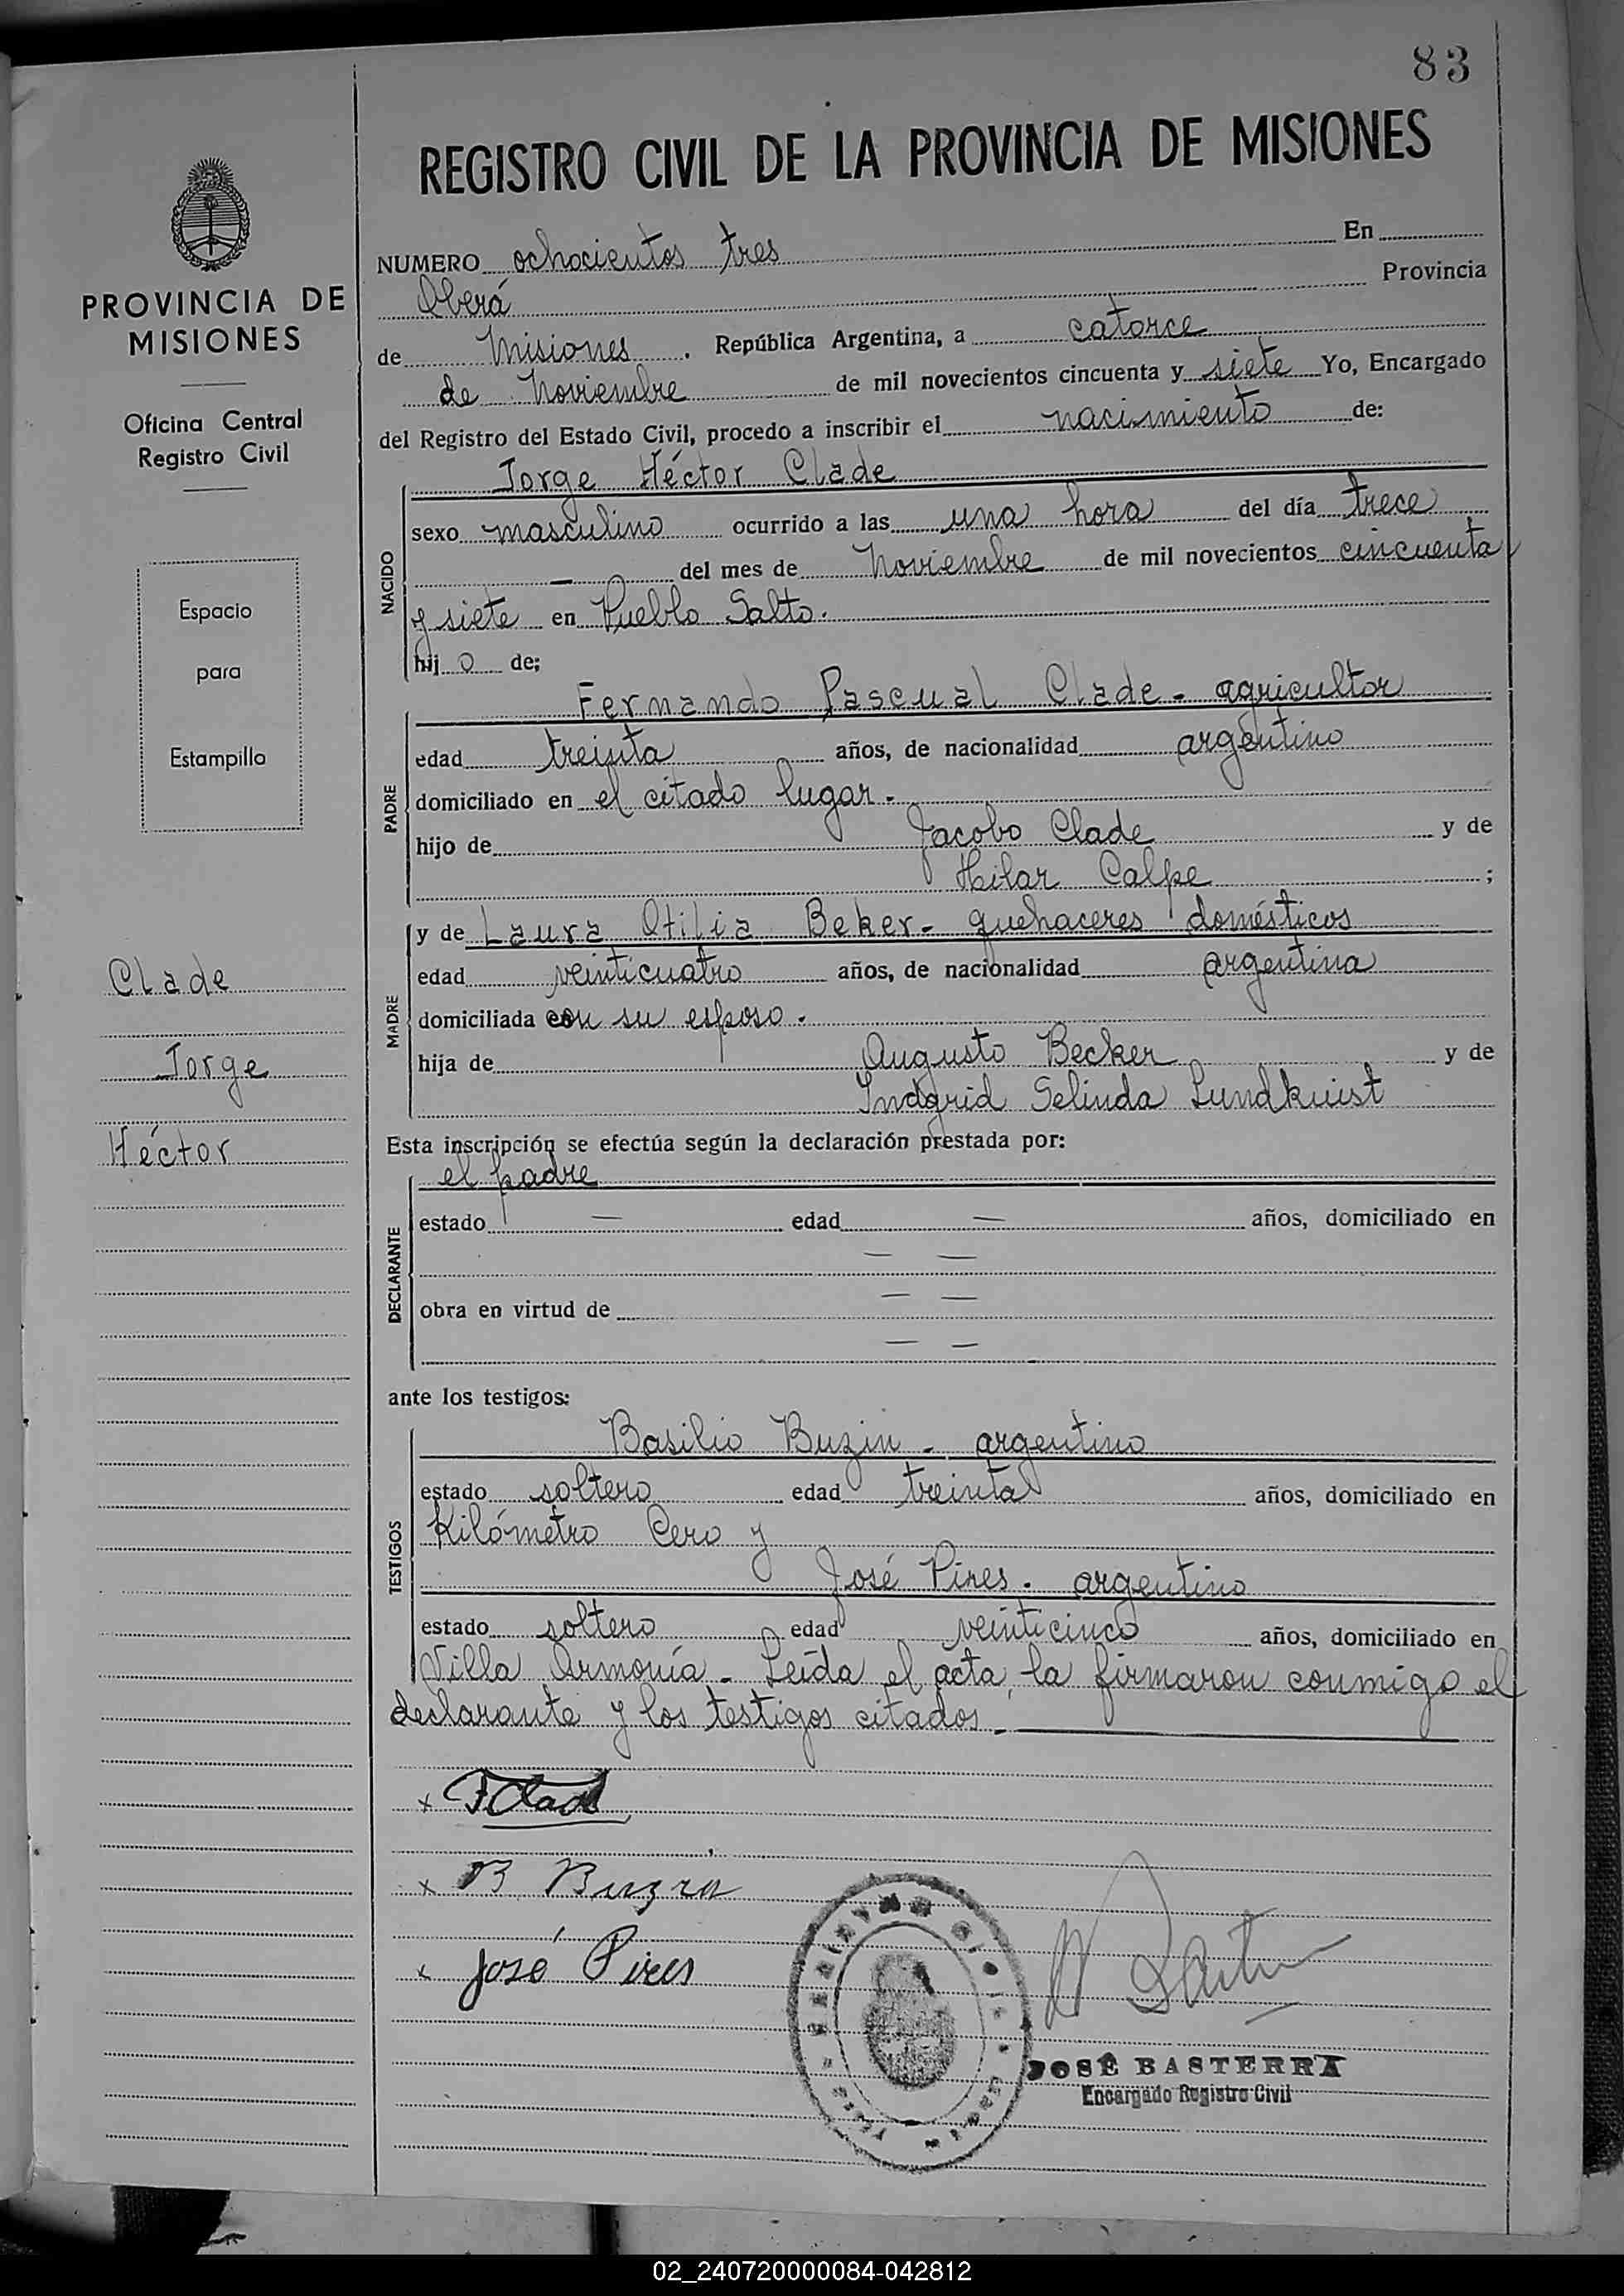 83
REGISTRO CIVIL DE LA PROVINCIA DE MISIONES
PROVINCIA DE
MISIONES
Oficina Central
Registro Civil
Espacio
para
Estampilla
Clade
Jorge
Héctor
NUMERO ochocientos tres En
Oberá Provincia
de Misiones. República Argentina, a catorce
de Noviembre de mil novecientos cincuenta y siete Yo, Encargado
del Registro del Estado Civil, procedo a inscribir el nacimiento de:
NACIDO
Jorge Héctor Clade
sexo masculino ocurrido a las una hora del día trece
— del mes de Noviembre de mil novecientos cincuenta
y siete en Pueblo Salto.
hij o de;
PADRE
Fernando Pascual Clade - agricultor
edad treinta años, de nacionalidad argentino
domiciliado en el citado lugar.
hijo de Jacobo Clade y de
Hilar Calpe ;
MADRE
y de Laura Otilia Beker - quehaceres domésticos
edad veinticuatro años, de nacionalidad argentina
domiciliada con su esposo.
hija de Augusto Becker y de
Indgrid Selinda Lundkuist
Esta inscripción se efectúa según la declaración prestada por:
DECLARANTE
el padre
estado — edad — años, domiciliado en
— —
obra en virtud de — —
— —
ante los testigos:
TESTIGOS
Basilio Buzin - argentino
estado soltero edad treinta años, domiciliado en
Kilómetro Cero y
José Pires. argentino
estado soltero edad veinticinco años, domiciliado en
Villa Armonía - Leída el acta, la firmaron conmigo el
declarante y los testigos citados.
x F Clade
x B Buzin
x José Pires
JOSÉ BASTERRA
Encargado Registro Civil
02_240720000084-042812